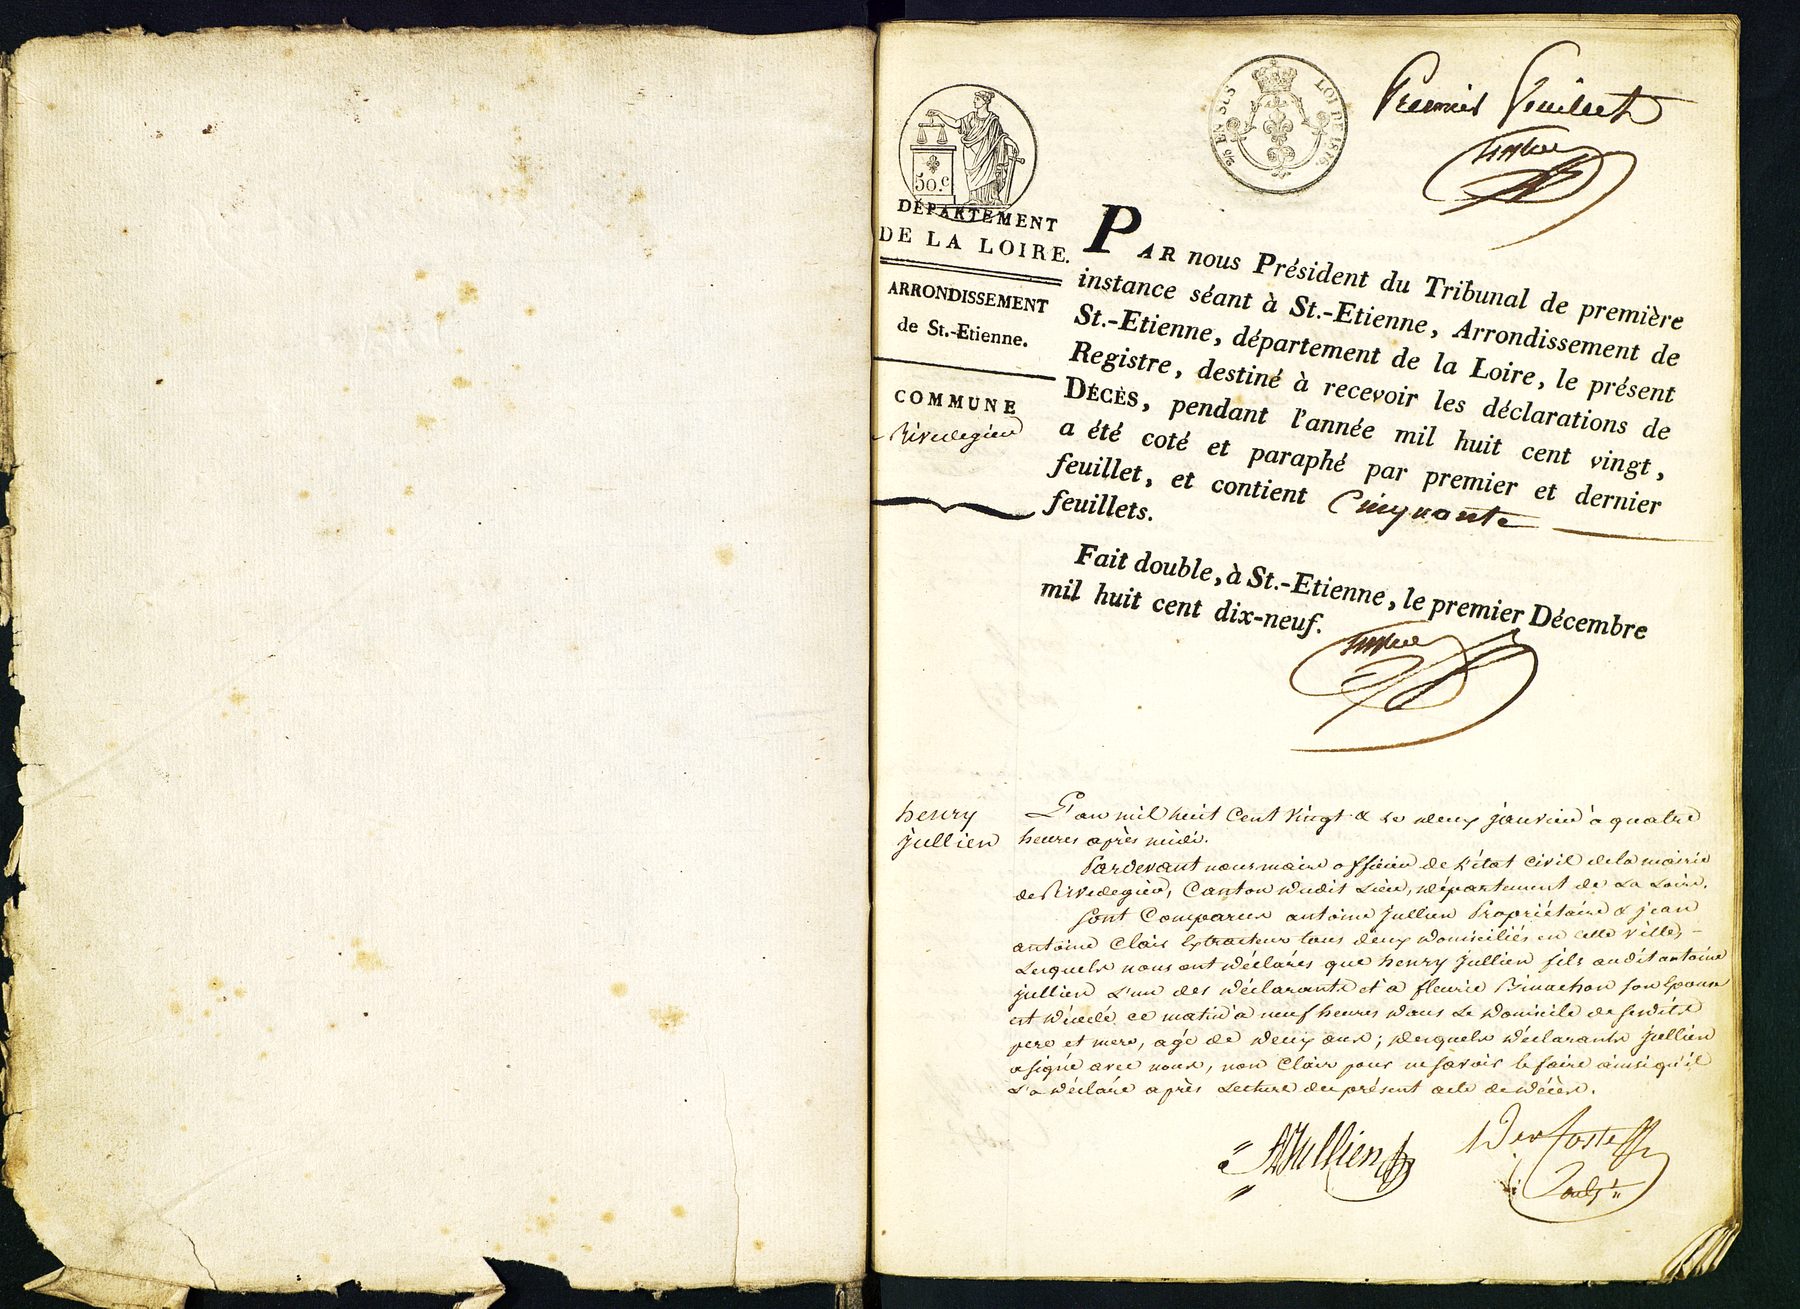 Premier feuillet
50.c
EN SUS
LOI DE 1816.
DÉPARTEMENT
DE LA LOIRE.
ARRONDISSEMENT
de St.-Etienne.
COMMUNE
Rivedegier
PAR nous Président du Tribunal de première
instance séant à St.-Etienne, Arrondissement de
St.-Etienne, département de la Loire, le présent
Registre, destiné à recevoir les déclarations de
DÉCÈS, pendant l'année mil huit cent vingt,
a été coté et paraphé par premier et dernier
feuillet, et contient Cinquante
feuillets.
Fait double, à St.-Etienne, le premier Décembre
mil huit cent dix-neuf.
henry
Jullien
L'an mil huit Cent Vingt & le deux janvier à quatre
heures après midi.
Pardevant nous maire officier de l'état civil de la mairie
de Rivedegier, Canton dudit Lieu, département de La Loire.
Sont Comparus antoine Jullien Propriétaire & jean
antoine Clair Extracteur tous deux domiciliés en cette ville,
Lesquels nous ont déclarés que henry Jullien fils audit antoine
Jullien L'un des déclarants et a fleurie Rinachon son Epouse
est décédé ce matin a neuf heures dans Le domicile de sesdits
pere et mere, agé de deux ans; desquels déclarants Jullien
a signé avec nous, non Clair pour ne savoir le faire ainsi qu'il
L'a déclaré après Lecture du présent acte de décès.
AJullien